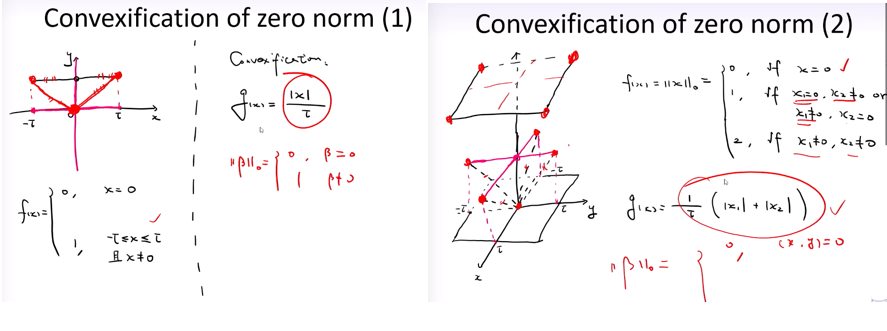 Convexification of zero norm (1)
y
-τ
0
τ
x
f(x)=
0, x=0
1, -τ≤x≤τ
且 x≠0
Convexification.
g(x)= |x| / τ
||β||₀= { 0, β=0
1 β≠0
Convexification of zero norm (2)
-τ
-τ
τ
y
τ
x
f(x)=||x||₀=
0, if x=0
1, if x₁=0, x₂≠0 or
x₁≠0, x₂=0
2, if x₁≠0, x₂≠0
g(x)= 1/τ (|x₁|+|x₂|)
||β||₀= { 0, (x,y)=0